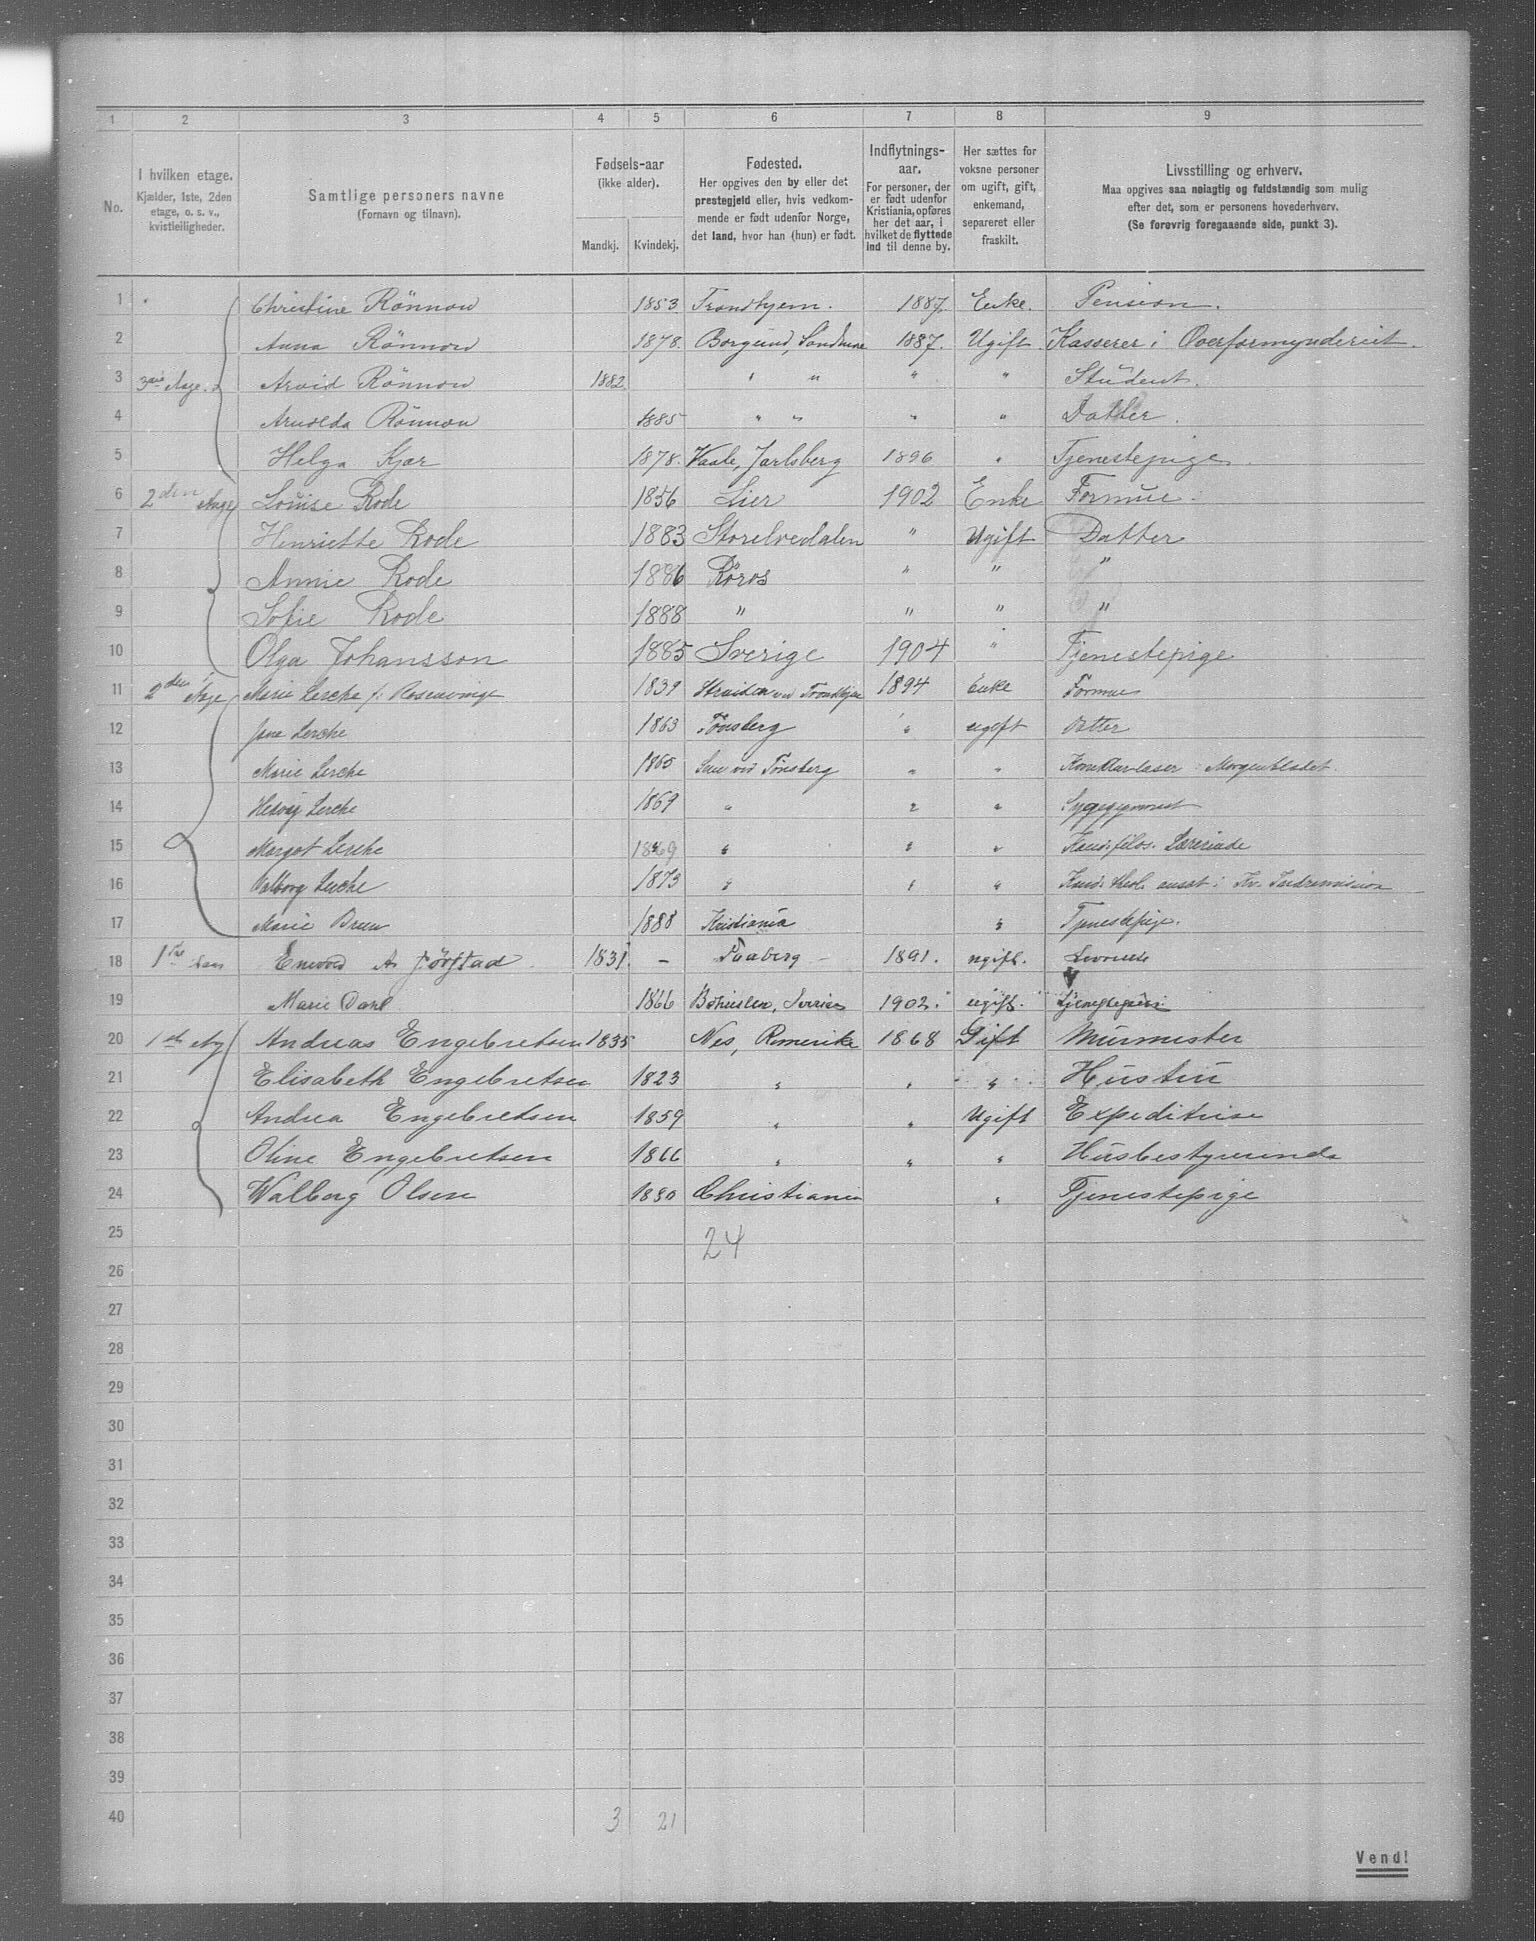 1 2 3 4 5 6 7 8 9
No. I hvilken etage. Kjælder, 1ste, 2den etage, o. s. v., kvistleiligheder. Samtlige personers navne (Fornavn og tilnavn). Fødsels-aar (ikke alder). Mandkj. Kvindekj. Fødested. Her opgives den by eller det prestegjeld eller, hvis vedkommende er født udenfor Norge, det land, hvor han (hun) er født. Indflytnings-aar. For personer, der er født udenfor Kristiania, opføres her det aar, i hvilket de flyttede ind til denne by. Her sættes for voksne personer om ugift, gift, enkemand, separeret eller fraskilt. Livsstilling og erhverv. Maa opgives saa nøiagtig og fuldstændig som mulig efter det, som er personens hovederhverv. (Se forøvrig foregaaende side, punkt 3).
1 Christine Rönnow 1853 Trondhjem. 1887. Enke. Pension.
2 Anna Rönnow 1878. Borgund, Söndmøre 1887. Ugift. Kasserer i Overformynderiet.
3 3die Etage. Arvid Rönnow 1882 " " " " Student.
4 Arnolda Rönnow 1885 " " " " Datter.
5 Helga Kjær 1878. Vaale, Jarlsberg 1896 " Tjenestepige.
6 2den Etage Louise Rode 1856 Lier 1902 Enke Formue.
7 Henriette Rode 1883 Storelvedalen " Ugift Datter
8 Annie Rode 1886 Röros " " "
9 Sofie Rode 1888 " " " "
10 Olga Johansson 1885 Sverige 1904 " Tjenestepige
11 2den Etage Marie Lerche f. Rosenvinge 1839 Strinden ved Trondhjem 1894 Enke Formue
12 Jana Lerche 1863 Tönsberg " ugift Datter
13 Marie Lerche 1865 Sem ved Tönsberg " " Korrekturlæser i Morgenbladet.
14 Hedvig Lerche 1869 " " " Sygegymnast
15 Margot Lerche 1869 " " " Kand. filos. Lærerinde
16 Valborg Lerche 1873 " " " Kand. theol. ansat i Kr. Indremission
17 Marie Bruu 1888 Kristiania " Tjenestepige.
18 1ste A. Jörstad 1831 - Faaberg - 1891. ugift.
19 Marie Dahl 1866 Bohuslen, Sverige 1902. ugift. Tjenestepige
20 1ste Etg Andreas Engebretsen 1835 Nes, Romerike 1868 Gift Murmester
21 Elisabeth Engebretsen 1823 " " " Hustru
22 Andrea Engebretsen 1859 " " Ugift Expeditrise
23 Oline Engebretsen 1866 " " " Husbestyrerinde
24 Walborg Olsen 1880 Christiania " Tjenestepige
25 24
26
27
28
29
30
31
32
33
34
35
36
37
38
39
40 3 21
Vend!